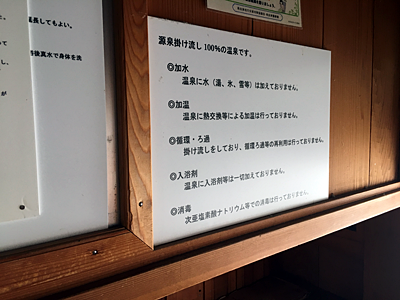 長してもよい。
後真水で身体を洗
源泉掛け流し100%の温泉です。
◎加水
温泉に水（湯、氷、雪等）は加えておりません。
◎加温
温泉に熱交換等による加温は行っておりません。
◎循環・ろ過
掛け流しをしており、循環ろ過等の再利用は行っておりません。
◎入浴剤
温泉に入浴剤等は一切加えておりません。
◎消毒
次亜塩素酸ナトリウム等での消毒は行っておりません。